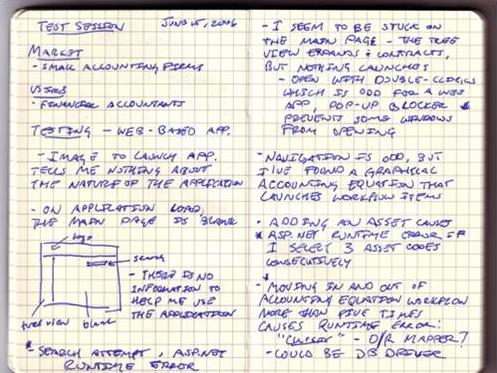 TEST SESSION JUNE 15, 2006
MARKET
- SMALL ACCOUNTING FIRMS
USERS
- FINANCIAL ACCOUNTANTS
TESTING - WEB-BASED APP.
- IMAGE TO LAUNCH APP.
TELLS ME NOTHING ABOUT
THE NATURE OF THE APPLICATION
- ON APPLICATION LOAD,
THE MAIN PAGE IS BLANK
logo
search
- THERE IS NO
INFORMATION TO
HELP ME USE
THE APPLICATION
tree view blank
* SEARCH ATTEMPT, ASP.NET
RUNTIME ERROR
- I SEEM TO BE STUCK ON
THE MAIN PAGE - THE TREE
VIEW EXPANDS & CONTRACTS,
BUT NOTHING LAUNCHES
- OPEN WITH DOUBLE-CLICKS
WHICH IS ODD FOR A WEB
APP, POP-UP BLOCKER *
PREVENTS SOME WINDOWS
FROM OPENING
- NAVIGATION IS ODD, BUT
I'VE FOUND A GRAPHICAL
ACCOUNTING EQUATION THAT
LAUNCHES WORKFLOW ITEMS
- ADDING AN ASSET CAUSES
* ASP.NET RUNTIME ERROR IF
I SELECT 3 ASSET CODES
CONSECUTIVELY
*
- MOVING IN AND OUT OF
ACCOUNTING EQUATION WORKFLOW
MORE THAN FIVE TIMES
CAUSES RUNTIME ERROR:
"CURSOR" - O/R MAPPER?
- COULD BE DB DRIVER